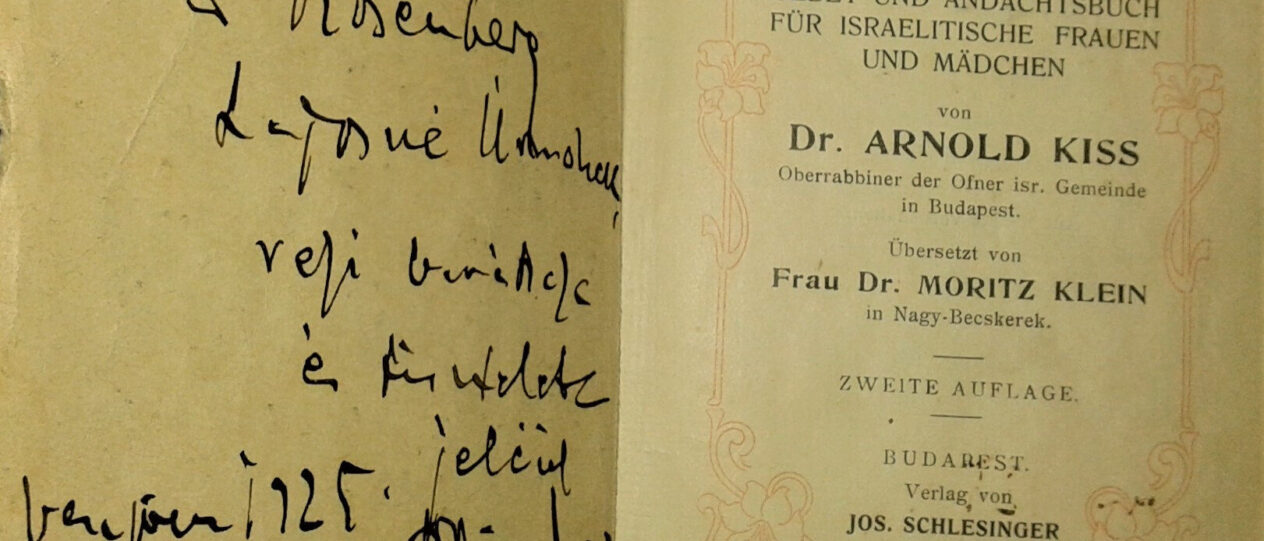 Rosenberg
Lajosné
régi barátsága
és tisztelete
jeléül
1925.
UND ANDACHTSBUCH
FÜR ISRAELITISCHE FRAUEN
UND MÄDCHEN
von
Dr. ARNOLD KISS
Oberrabbiner der Ofner isr. Gemeinde
in Budapest.
Übersetzt von
Frau Dr. MORITZ KLEIN
in Nagy-Becskerek.
ZWEITE AUFLAGE.
BUDAPEST.
Verlag von
JOS. SCHLESINGER